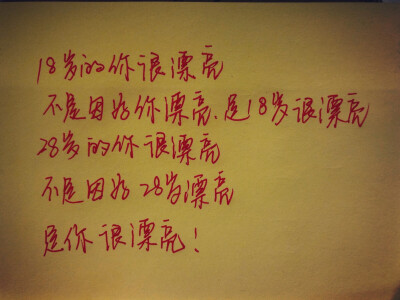 18岁的你很漂亮
不是因为你漂亮.是18岁很漂亮
28岁的你很漂亮
不是因为28岁漂亮
是你很漂亮!